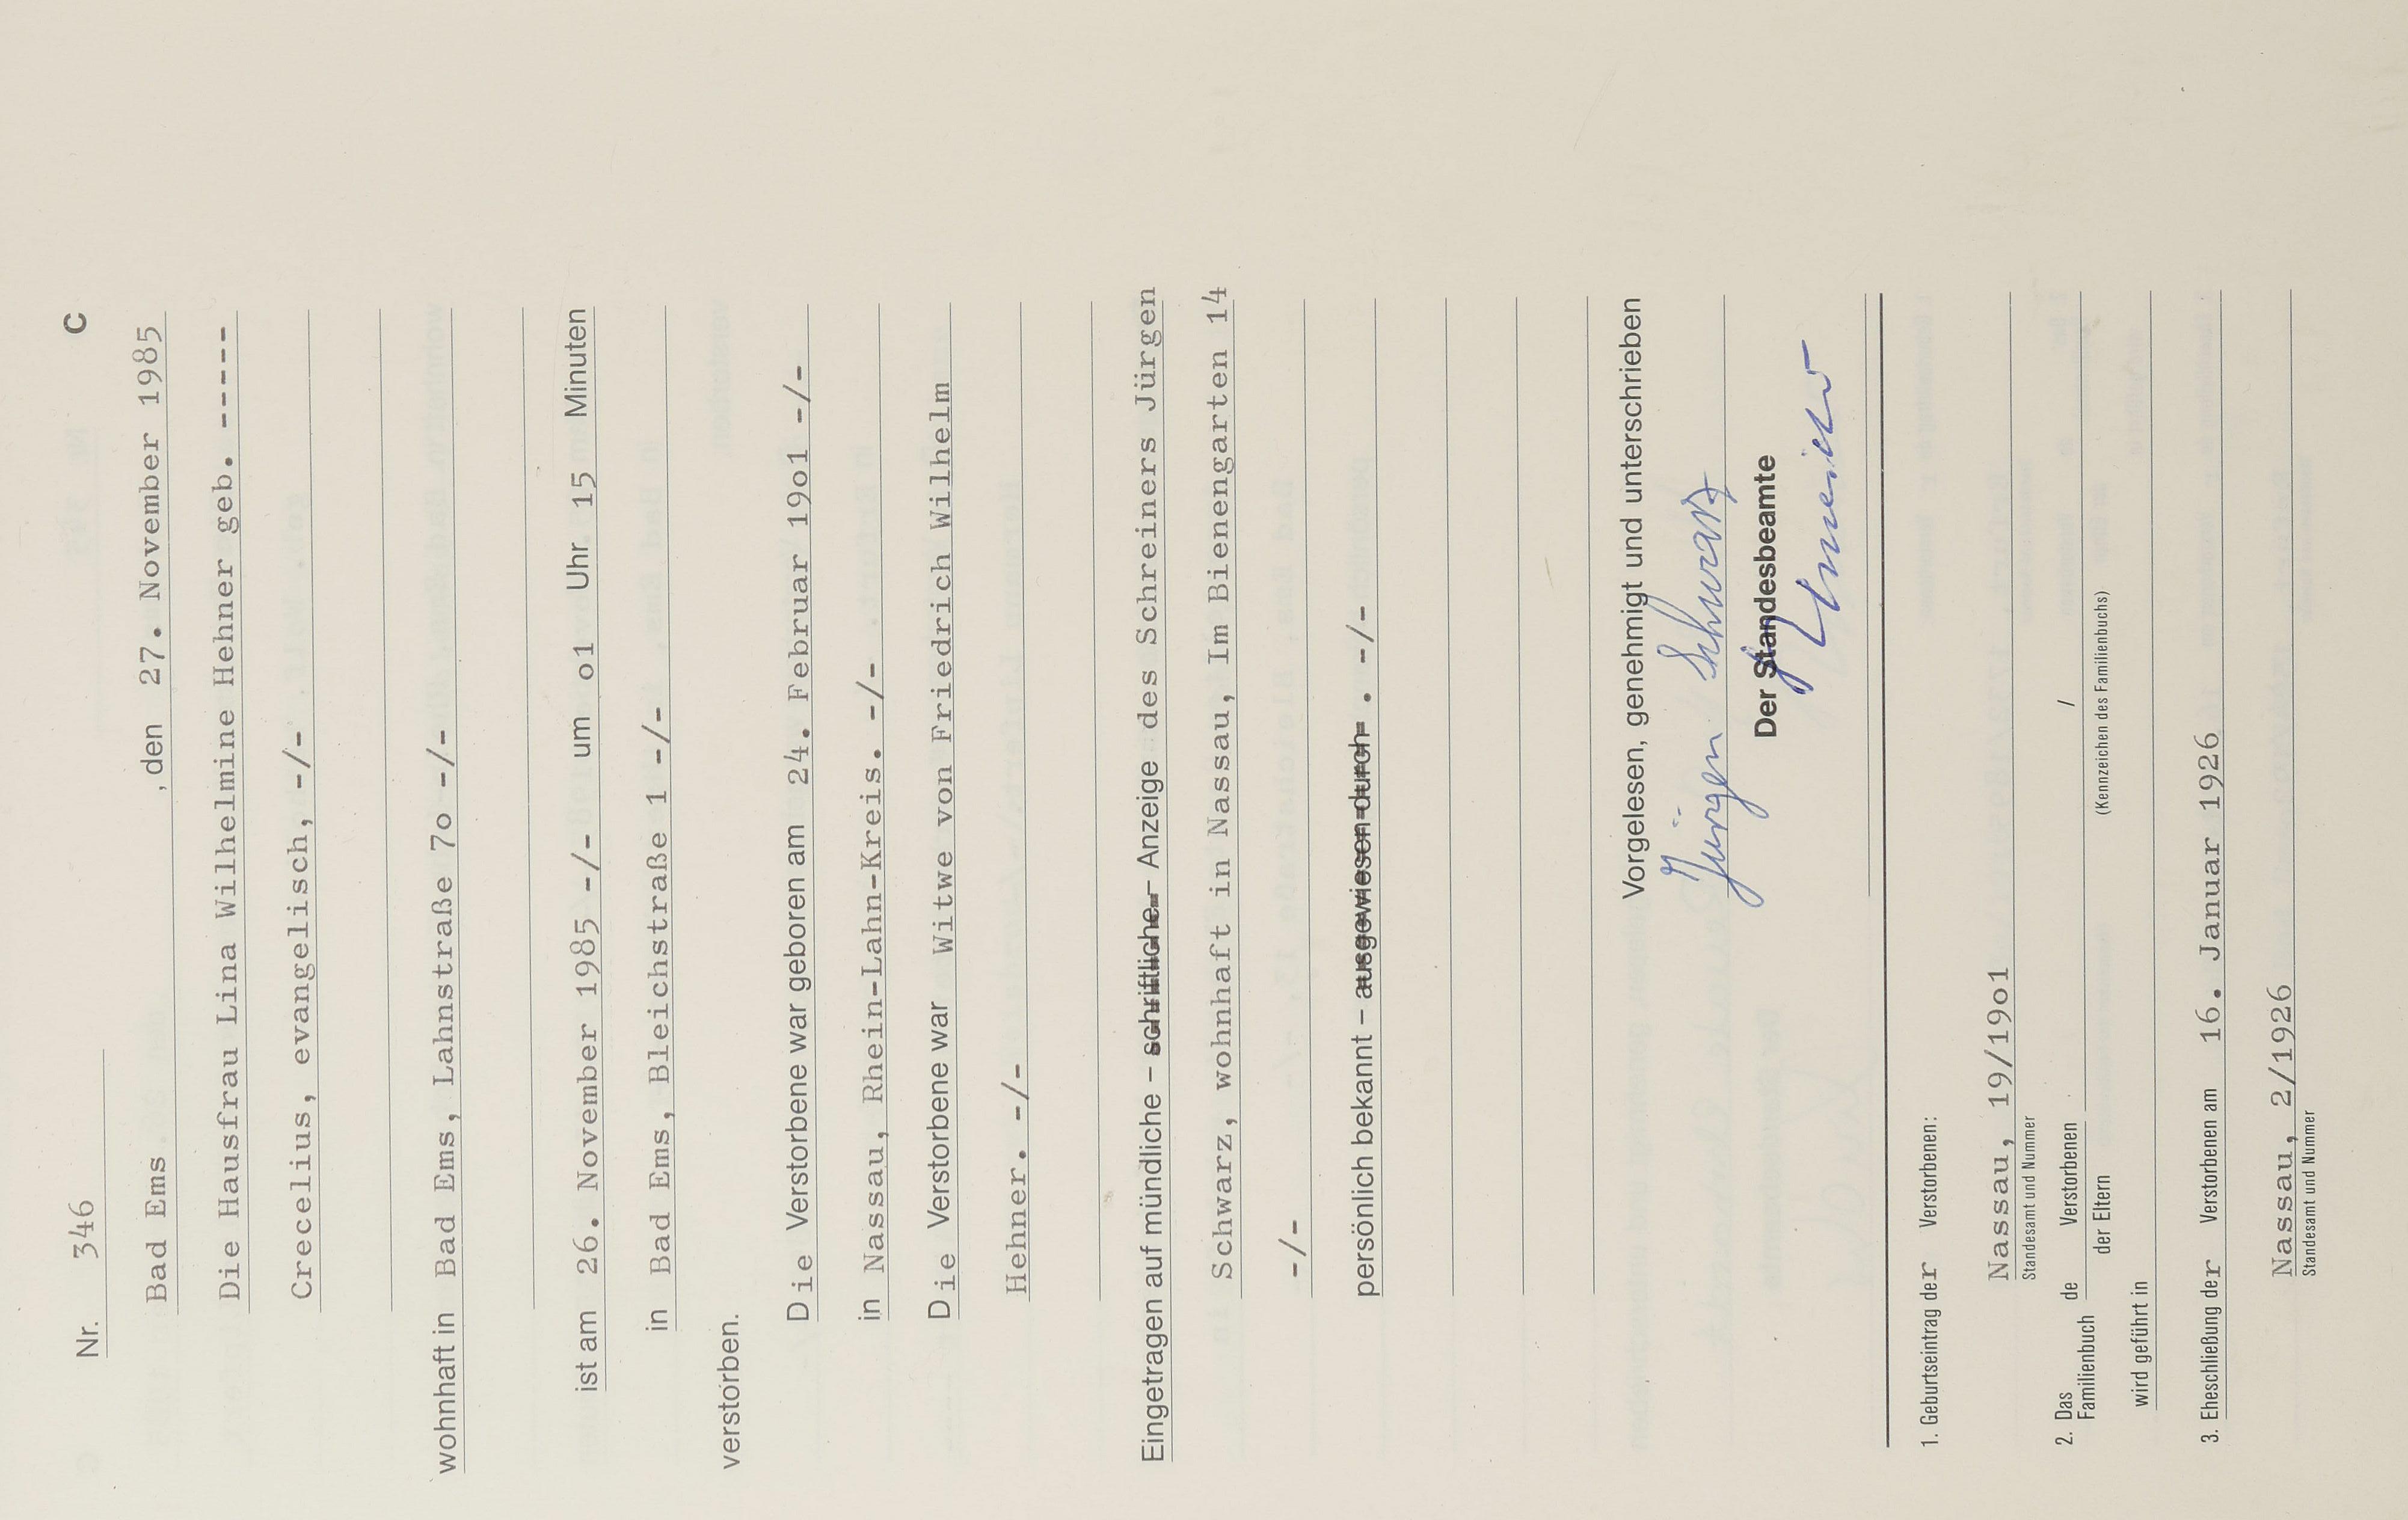 Nr. 346 C
Bad Ems , den 27. November 1985
Die Hausfrau Lina Wilhelmine Hehner geb. -----
Crecelius, evangelisch, -/-
wohnhaft in Bad Ems, Lahnstraße 7o -/-
ist am 26. November 1985 -/- um o1 Uhr 15 Minuten
in Bad Ems, Bleichstraße 1 -/-
verstorben.
Die Verstorbene war geboren am 24. Februar 19o1 -/-
in Nassau, Rhein-Lahn-Kreis. -/-
Die Verstorbene war Witwe von Friedrich Wilhelm
Hehner. -/-
Eingetragen auf mündliche – schriftliche – Anzeige des Schreiners Jürgen
Schwarz, wohnhaft in Nassau, Im Bienengarten 14
-/-
persönlich bekannt – ausgewiesen durch . -/-
Vorgelesen, genehmigt und unterschrieben
Jürgen Schwarz
Der Standesbeamte
1. Geburtseintrag der Verstorbenen:
Nassau, 19/19o1
Standesamt und Nummer
2. Das Familienbuch de Verstorbenen /
der Eltern (Kennzeichen des Familienbuchs)
wird geführt in
3. Eheschließung der Verstorbenen am 16. Januar 1926
Nassau, 2/1926
Standesamt und Nummer